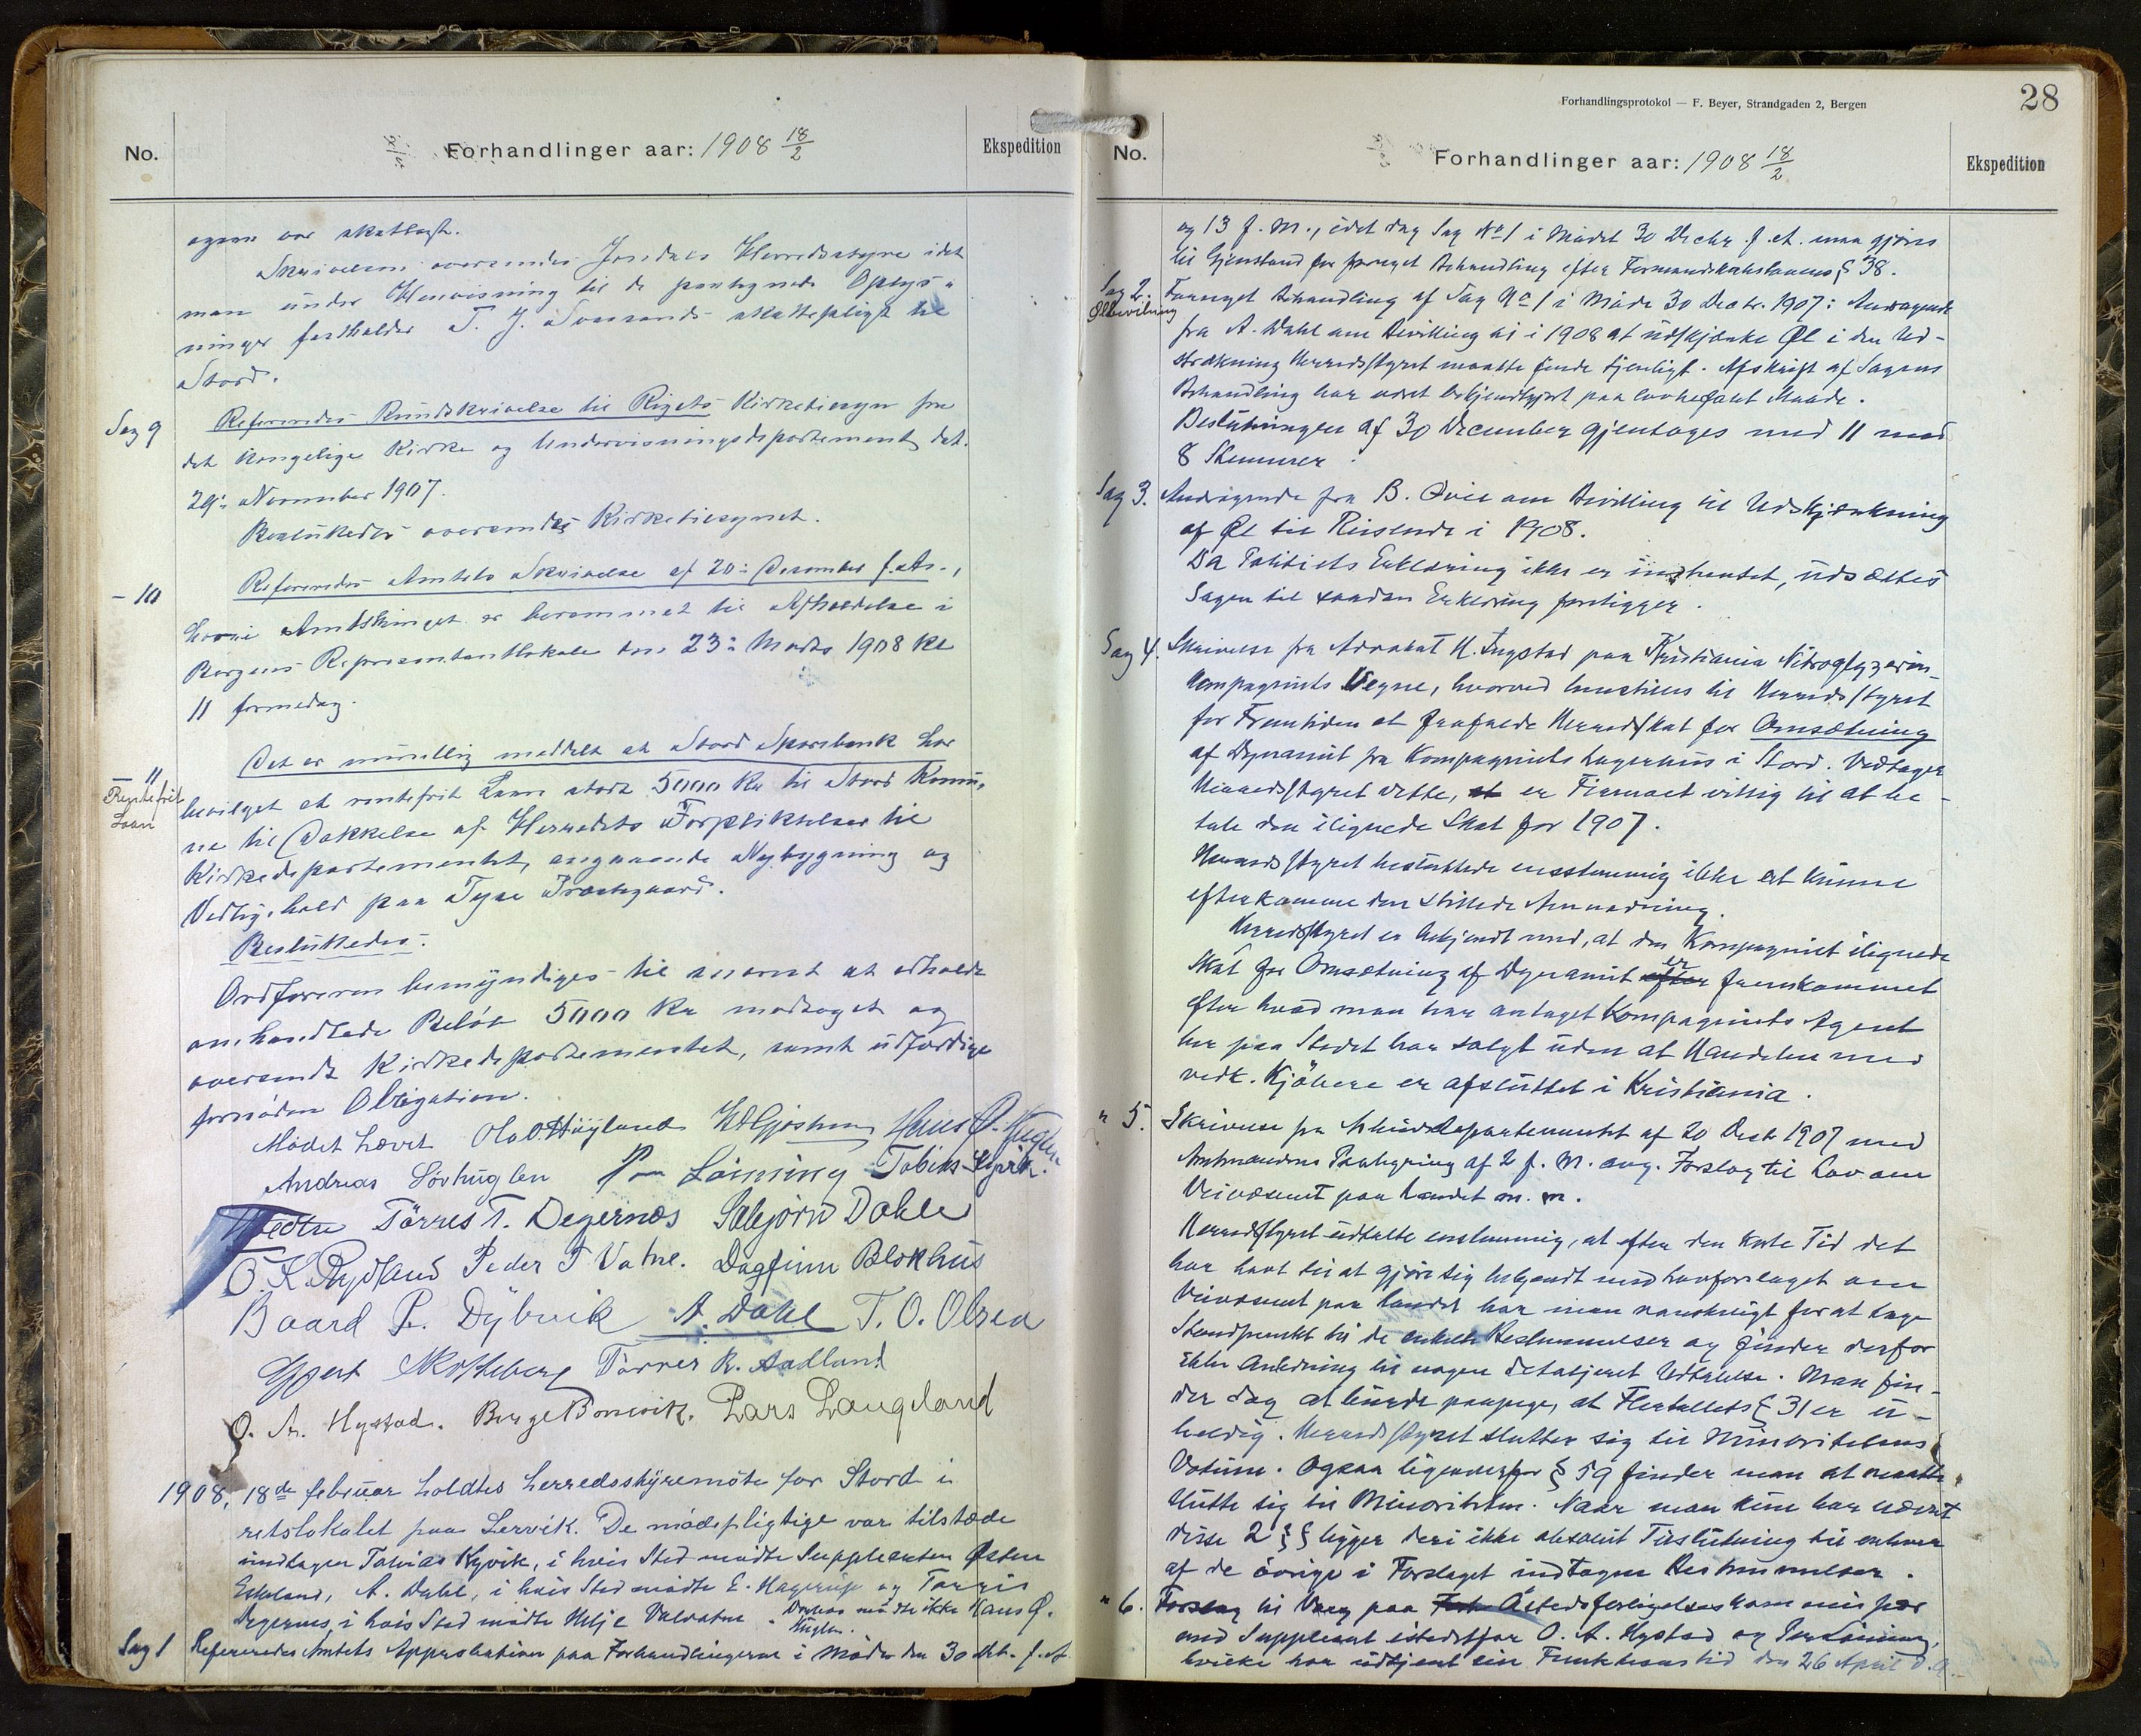 No.
Forhandlinger aar: 1908 18/2
Ekspedition
ogsaa var skatlagt.
Skrivelsen oversendes Jondals Herredsstyre idet
man under Henvisning til de paategnede Oplys-
ninger fastholder T. J. skattepligt til
Stord.
Sag 9
Refereredes Rundskrivelse til Rigets Kirketilsyn fra
det Kongelige Kirke og Undervisningsdepartement dat.
29: November 1907.
Besluttedes oversendes Kirketilsynet.
- 10
Refereredes Amtets Skrivelse af 20: Desember f. Ar.,
hvori Amtsthinget er berammet til Afholdelse i
Bergens Representantlokale den 23: Marts 1908 Kl
11 formedag.
- 11
Rentefrit
Laan
Det er mundtlig meddelt at Stord Sparebank har
bevilget et rentefrit Laan stort 5000 Kr til Stord Kommu-
ne til Dækkelse af Herredets Forpliktelser til
Kirkedepartementet, angaaende Nybygning og
Vedligehold paa Tyse Præstegaard.
Besluttedes:
Ordføreren bemyndiges til snarest at erholde
omhandlede Beløb 5000 Kr modtaget og
oversendt Kirkedepartementet, samt udfærdige
fornøden Obligation.
Mødet hævet Ola O. Høyland Hans Ø. Huglen
Andreas Sørhuglen Per Lønning Tobias Kyvik.
Tørres T. Degernes Asbjørn Dahle
O. K. Rydland Peder T Vatne. Dagfinn Blokhus
Baard P. Dybvik A. Dahl T. O. Olsen
Tørres R. Aadland
O. A. Hystad. Børge Bonevik. Lars Langeland
1908, 18de februar holdtes herredsstyremøte for Stord i
retslokalet paa Lervik. De mødepligtige var tilstæde
undtagen Tobias Kyvik, i hvis Sted mødte Suppleanten Østen
Eskeland, A. Dahl, i hvis Sted mødte E. Hagerup og Tørres
Degernes, i hvis Sted mødte Helje Valvatne. Desuden mødte ikke Hans Ø.
Huglen.
Sag 1 Refereredes Amtets Approbation paa Forhandlingerne i Møde den 30 Dbr. f. A
Forhandlingsprotokol — F. Beyer, Strandgaden 2, Bergen
28
No.
Forhandlinger aar: 1908 18/2
Ekspedition
og 13 f. M., idet dog Sag No 1 i Mødet 30 Decbr. f. A. maa gjøres
til Gjenstand for fornyet Behandling efter Formandskabslovens § 38.
Sag 2.
Ølbevilning
Fornyet Behandling af Sag No 1 i Møde 30 Decbr. 1907: Andragende
fra A. Dahl om Bevilling til i 1908 at udskjænke Øl i den Ud-
strækning Herredsstyret maatte finde tjenligt. Afskrift af Sagens
Behandling har været bekjendtgjort paa lovbefalt Maade.
Beslutningen af 30 December gjentages med 11 mod
8 Stemmer.
Sag 3. Andragende fra B. Qvie om Bevilling til Udskjænkning
af Øl til Reisende i 1908.
Da Politiets Erklæring ikke er indhentet, udsættes
Sagen til saadan Erklæring foreligger.
Sag 4. Skrivelse fra Advokat H. Ingstad paa Kristiania Nitroglyzerin-
kompagniets Vegne, hvorved henstilles til Herredsstyret
for Fremtiden at frafalde Herredsskat for Omsætning
af Dynamit fra Kompagniets Lagerhus i Stord. Vedtager
Herredsstyret dette, er Firmaet villig til at be-
tale den ilignede Skat for 1907.
Herredsstyret besluttede enstemmig ikke at kunne
efterkomme den stillede Anmodning.
Herredsstyret er bekjendt med, at den Kompagniet ilignede
Skat for Omsætning af Dynamit efter er fremkommet
efter hvad man har antaget Kompagniets Agent
her paa Stedet har solgt uden at Handelen med
vedk. Kjøbere er afsluttet i Kristiania.
" 5. Skrivelse fra Arbeidsdepartementet af 20 Decbr 1907 med
Amtmandens Paategning af 2 f. M. ang. Forslag til Lov om
Veivæsenet paa Landet m. m.
Herredsstyret udtalte enstemmig, at efter den korte Tid det
har havt til at gjøre sig bekjendt med Lovforslaget om
Veivæsenet paa Landet har man vanskeligt for at tage
Standpunkt til de enkelte Bestemmelser og finder derfor
ikke Anledning til nogen detaljeret Udtalelse. Man fin-
der dog at burde paapege, at Flertallets § 31 er u-
heldig. Herredsstyret slutter sig til Minoritetens
Votum. Ogsaa ligeoverfor § 59 finder man at maatte
slutte sig til Minoriteten. Naar man kun har nævnt
disse 2 §§ ligger deri ikke absolut Tilslutning til enhver
af de øvrige i Forslaget indtagne Bestemmelser.
" 6. Forslag til Valg paa Aastedsforligelseskommissær
med Suppleant istedetfor O. A. Hystad og Per Lønning,
hvilke har udtjent sin Funktionstid den 26 April d. A.